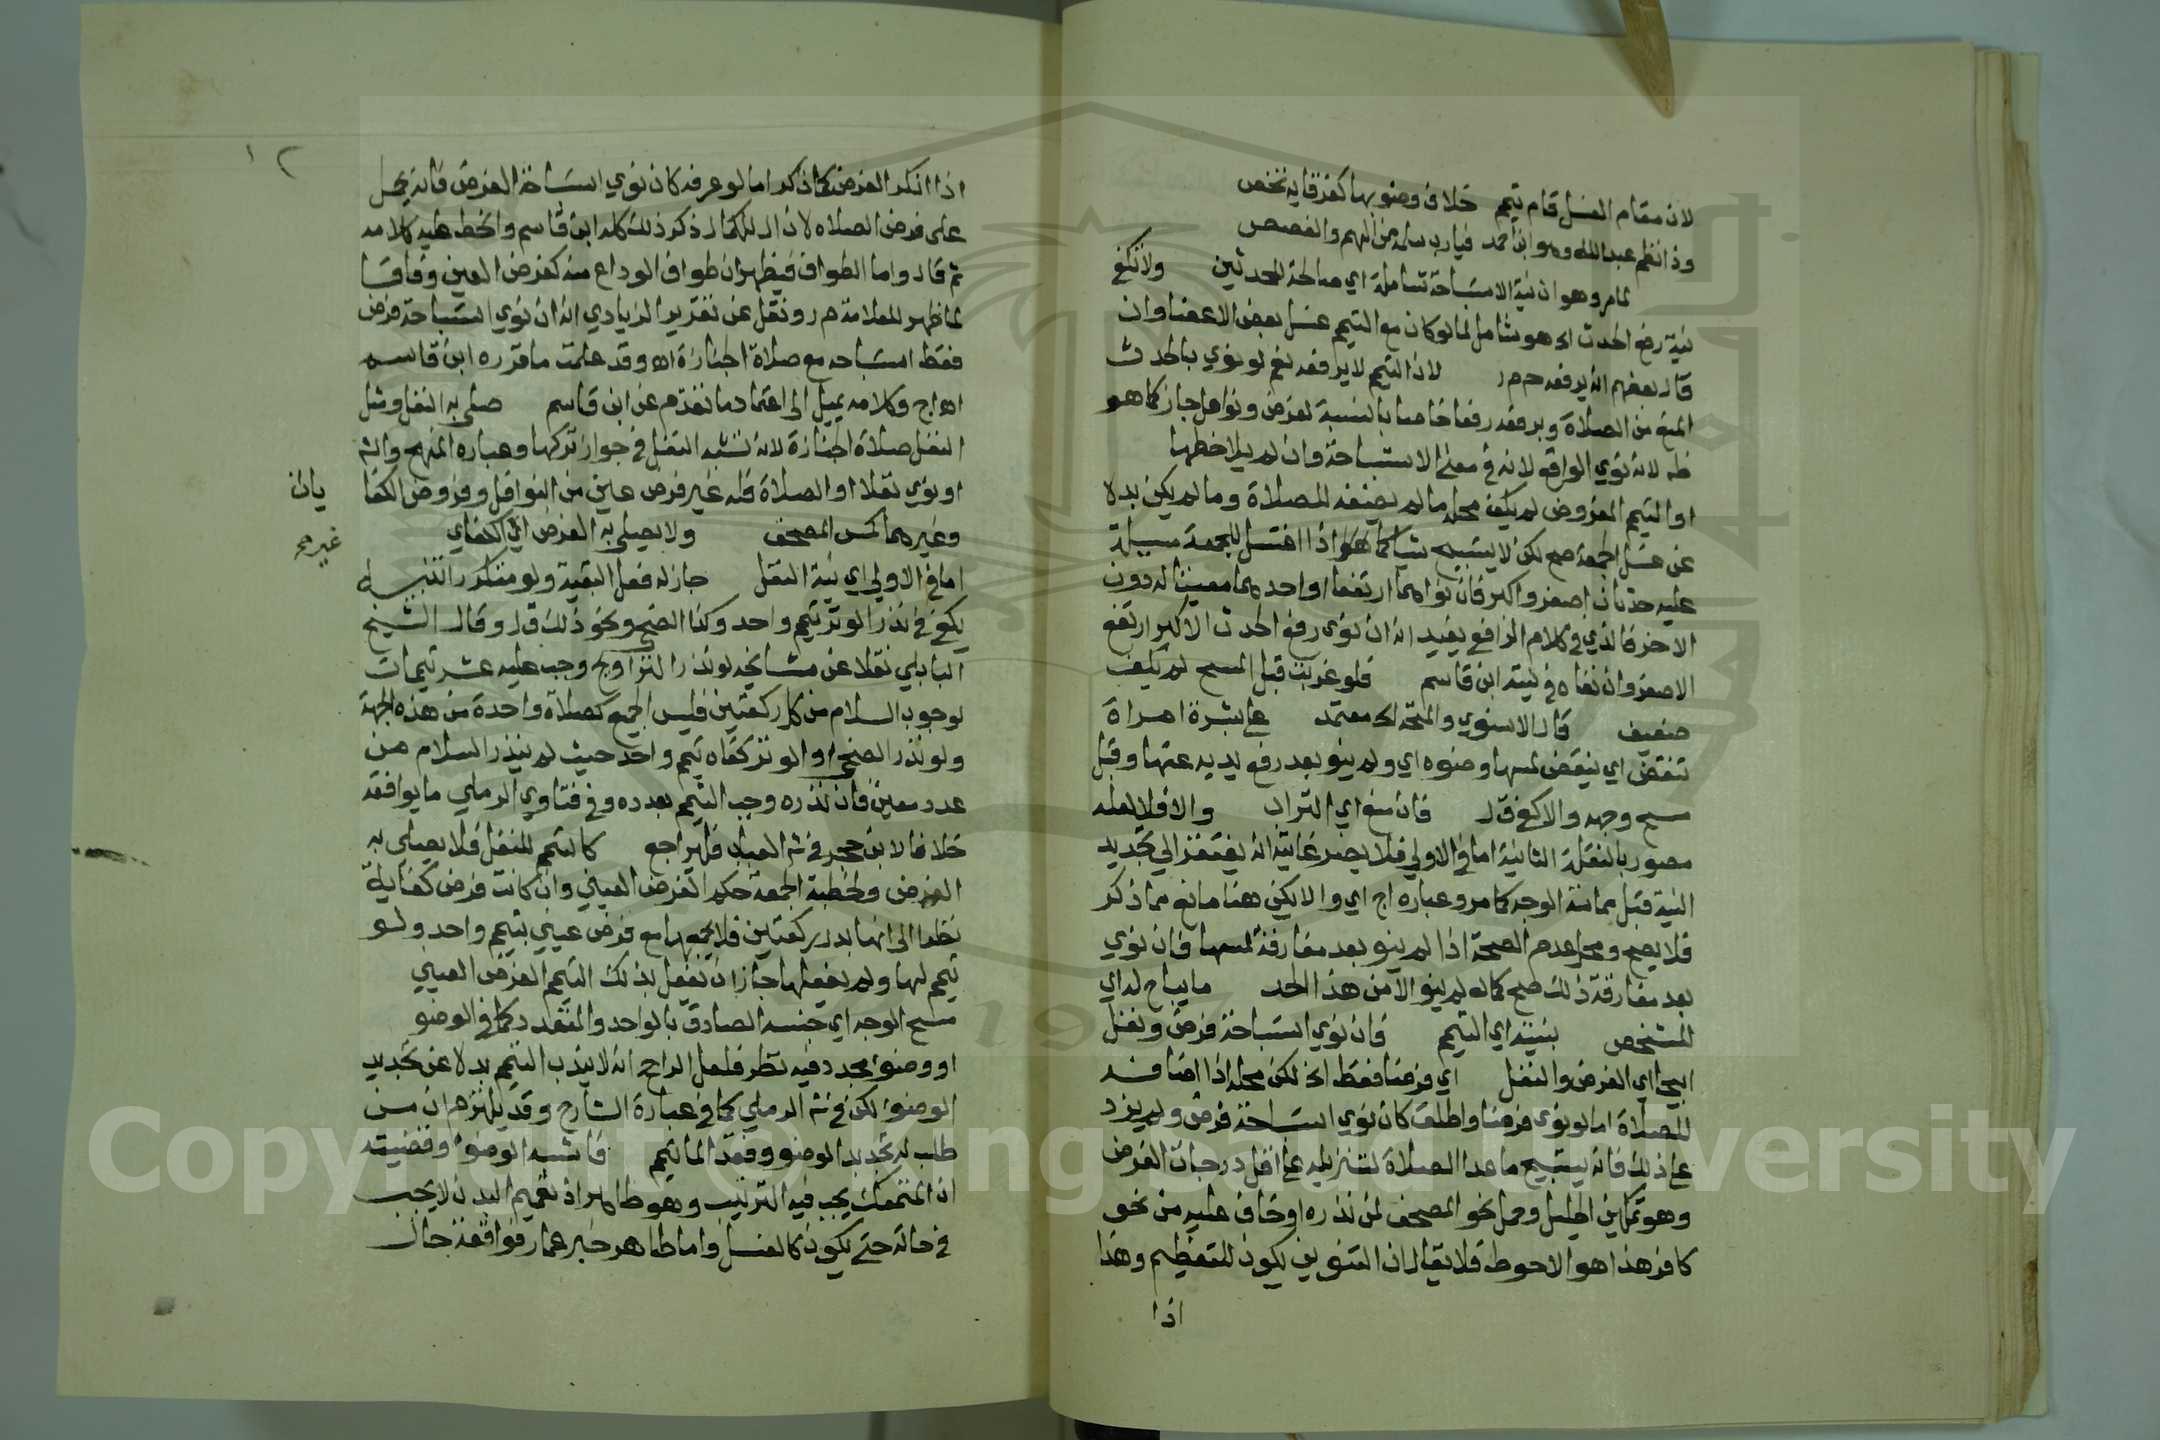 لان مقام الغسل قام تيمم خلاف وضو بها كفرقا به نخص
وذا نظم عبد الله وهو ابن احمد فيارب سلمه من الهم والغصص
لمامر وهو ان نية الاستباحة تساملة اي صالحة للحدثين ولا تكفي
نية رفع الحدث اد هو شامل لما لو كان مع التيمم غسل بعض الاعضا وان
قال بعضهم انه يرفعه ح م ر لان التيمم لا يرفعه نعم لو نوي بالحدث
المنع من الصلاة وبرفعه رفعا خاصا بالنسبة لفرض ونوافل جاز كما هو
ظه لانه نوي الواقع لانه في معنى الاستباحة وان لم يلاحظها
او التيمم المفروض لم يكف محله ما لم يضفه للصلاة وما لم يكن بدلا
عن غسل الجمعة صح لكن لا يستبيح شيا كما هو اذا اغتسل للجمعة مسيلة
عليه حدثان اصغر واكبر فان نواهما ارتفعا او احدهما معينا له دون
الاخر فالذي في كلام الرافعي يفيد انه ان نوى رفع الحدث الاكبر ارتفع
الاصغر وان نفاه في نيته ابن قاسم فلو عزبت قبل المسح لم يكف
ضعيف قال الاسنوي والمتجه اله معتمد على بشرة امراة
تنقض اي ينقض لمسها وضوه اي ولم ينو بعد رفع يديه عنها وقبل
مسح وجهه والا كفى ق ل فان منع اي التراب والا فلا لعله
مصور بالنقلة الثانية اما في الاولي فلا يضر غايته انه يفتقر الي تجديد
النية قبل مماسة الوجه كما مر وعباره اج اي والا يكن هنا مانع مما ذكر
فلا يصح ومحل عدم الصحة اذا لم ينو بعد مفارقة لمسها فان نوي
بعد مفارقة ذلك صح كما لو لم ينو الا من هذا الحد ما يباح له اي
للشخص بنيته اي التيمم فان نوي استباحة فرض ونفل
ابيحا اي الفرض والنفل اي فرضا فقط الخ لكن محله اذا اضافه
للصلاة اما لو نوى فرضا واطلق كان نوي استباحة فرض ولم يزد
على ذلك فانه يستبيح ما عدا الصلاة لتنزيله على اقل درجات الفرض
وهو تمكين الحليل وحمل نحو المصحف لمن نذره او خاف عليه من نحو
كافر هذا هو الاحوط فلا يقال ان التنوين يكون للتعظيم وهذا
اذا
١٢
اذا انكر الفرض كما ذكر اما لو عرفه كان نوي استباحة الفرض فانه يحمل
على فرض الصلاه لان ال للكمال ذكر ذلك كله ابن قاسم وانحط عليه كلامه
ثم قال واما الطواف فيظهر ان طواف الوداع منه كفرض العين وفاقا
لما ظهر للعلامة م ر ونقل عن تقرير الزيادي انه ان نوي استباحة فرض
فقط استباحه مع صلاة الجنازة اه وقد علمت ما قرره ابن قاسم
اه اج وكلامه يميل الى اعتماد ما تقدم عن ابن قاسم صلى به النفل ومثل
النفل صلاة الجنازة لانه تشبه النفل في جواز تركها وعباره المنهج والش
او نوى نفلا او الصلاة فله غير فرض عين من النوافل وفروض الكفا
وغيرهما كمس المصحف ولا يصلي به الفرض اي الكفاي
يات
غير صح
اما في الاولي اي نية النفل جاز له فعل البقية ولو متكررا تنبيه
يكفي في نذر الوتر تيمم واحد وكذا الضحي ونحو ذلك ق ل وقال الشيخ
البابلي نقلا عن مشايخه لو نذر التراويح وجب عليه عشر تيممات
لوجوب السلام من كل ركعتين فليس الجميع كصلاة واحدة من هذه الجهة
ولو نذر الضحي او الوتر كفاه تيمم واحد حيث لم ينذر السلام من
عدد معين فان نذره وجب التيمم بعدده وفي فتاوي الرملي ما يوافقه
خلافا لابن حجر في شر العباب فليراجع كالتيمم للنفل فلا يصلي به
الفرض ولخطبة الجمعة حكم الفرض العيني وان كانت فرض كفاية
نظرا الى انها بدل ركعتين فلا يجمعها مع فرض عيني بتيمم واحد ولو
تيمم لها ولم يفعلها جاز ان يفعل بذلك التيمم الفرض العيني
مسح الوجه اي جنسه الصادق بالواحد والمتعدد كما في الوضو
او وضوء مجدد فيه نظر فلعل الراجح انه لا يندب التيمم بدلا عن تجديد
الوضوء لكن في شر الرملي كما في عبارة الشارح وقد يلتزم ان من
طلب له تجديد الوضو وفقد الماء تيمم فاشبه الوضوء وقضيته
ان المتمعك يجب فيه الترتيب وهو ظاهر اذ تعميم البدن لا يجب
في حالة حتي يكون كالغسل واما ظاهر خبر عمار فواقعة حال